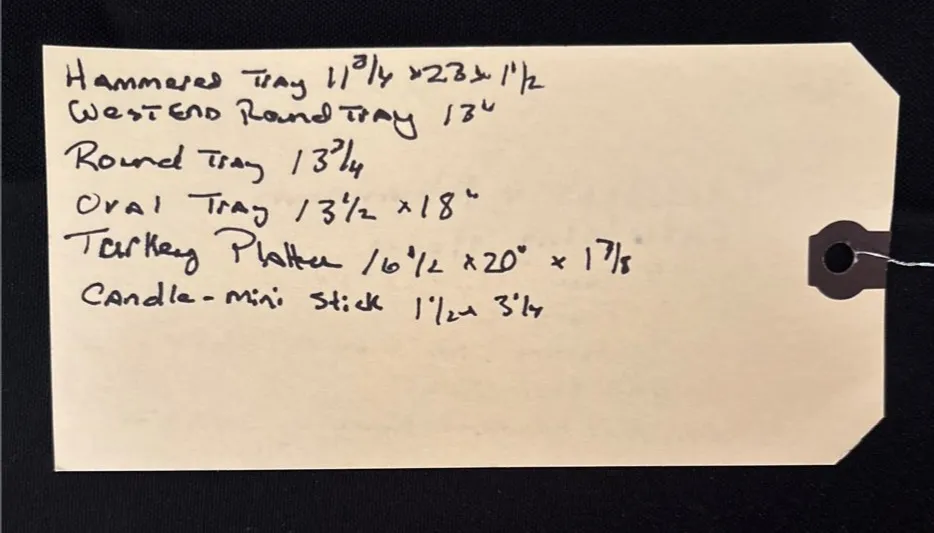 Hammered Tray 11 3/4 x 23 x 1 1/2
West End Round Tray 13"
Round Tray 13 3/4
Oval Tray 13 1/2 x 18"
Turkey Platter 16 1/2 x 20" x 1 7/8
Candle-mini Stick 1 1/2 x 3 1/4